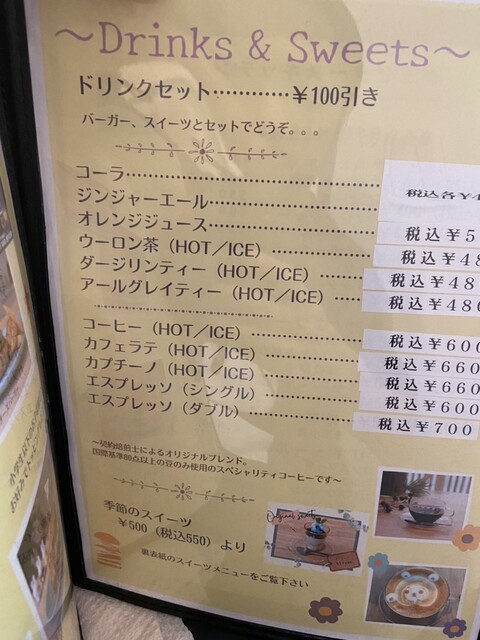 ～Drinks & Sweets～
ドリンクセット…………¥100引き
バーガー、スイーツとセットでどうぞ。。。
コーラ
ジンジャーエール
税込各¥4
オレンジジュース 税込¥5
ウーロン茶（HOT／ICE） 税込¥48
ダージリンティー（HOT／ICE） 税込¥48
アールグレイティー（HOT／ICE） 税込¥480
コーヒー（HOT／ICE） 税込¥600
カフェラテ（HOT／ICE） 税込¥660
カプチーノ（HOT／ICE） 税込¥660
エスプレッソ（シングル） 税込¥600
エスプレッソ（ダブル） 税込¥700
～契約焙煎士によるオリジナルブレンド。
国際基準80点以上の豆のみ使用のスペシャリティコーヒーです～
季節のスイーツ
¥500（税込550）より
裏表紙のスイーツメニューをご覧下さい
Original sweets